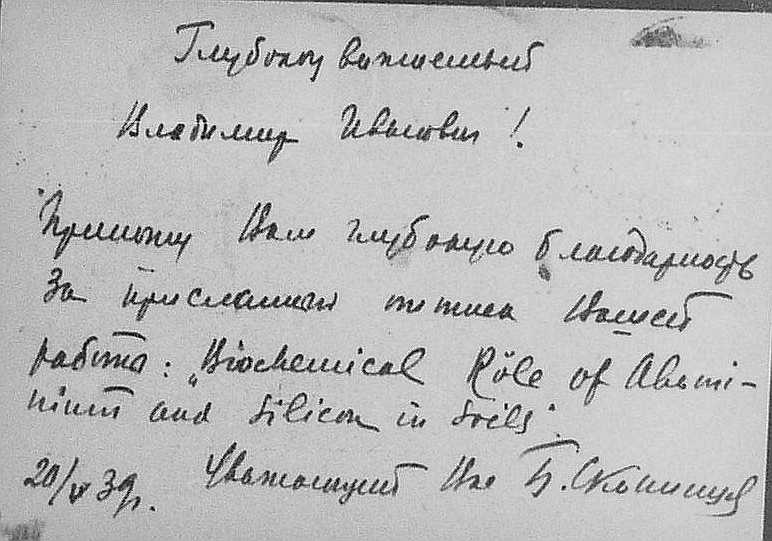 Глубокоуважаемый
Владимир Иванович!
Приношу Вам глубокую благодарность
за присланный оттиск Вашей
работы: „Biochemical Rôle of Alumi-
nium and Silicon in Soils".
20/V 39г. Уважающий Вас Б. Скопинцев